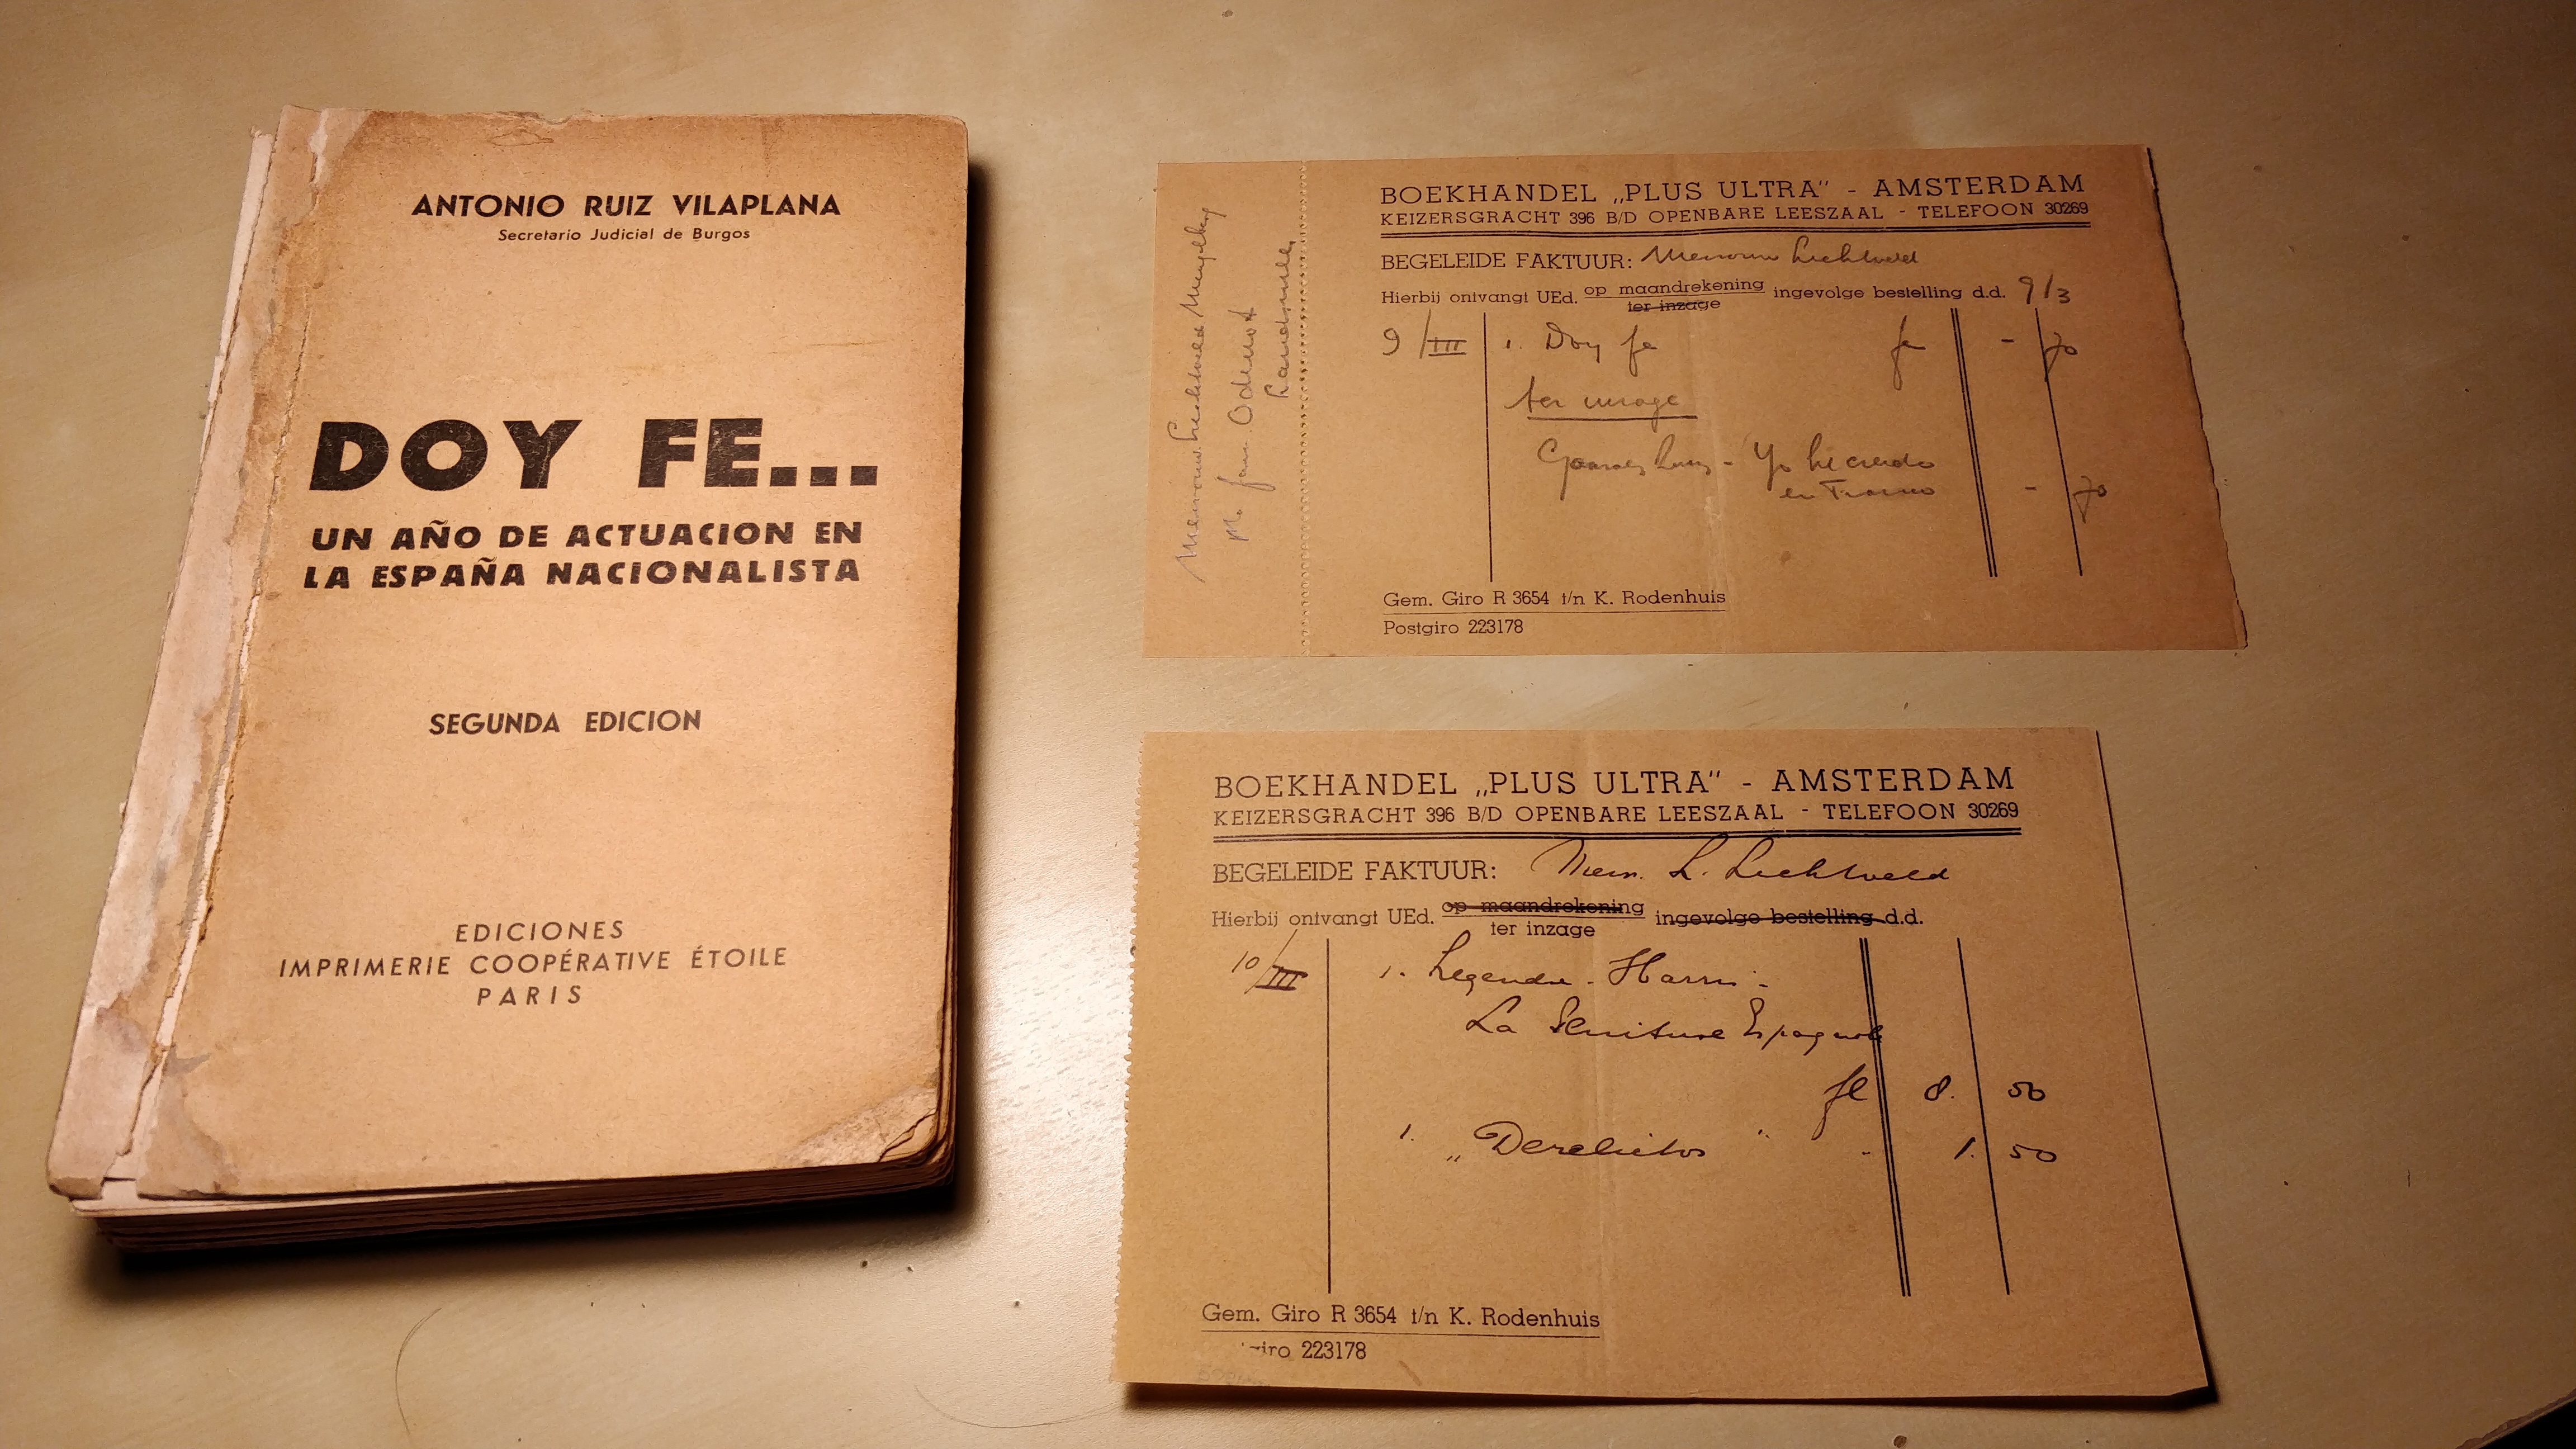 ANTONIO RUIZ VILAPLANA
Secretario Judicial de Burgos
DOY FE...
UN AÑO DE ACTUACION EN
LA ESPAÑA NACIONALISTA
SEGUNDA EDICION
EDICIONES
IMPRIMERIE COOPÉRATIVE ÉTOILE
PARIS
Mevrouw Lichtveld
p/a fam.
BOEKHANDEL „PLUS ULTRA" - AMSTERDAM
KEIZERSGRACHT 396 B/D OPENBARE LEESZAAL - TELEFOON 30269
BEGELEIDE FAKTUUR: Mevrouw Lichtveld
Hierbij ontvangt UEd. op maandrekening ingevolge bestelling d.d. 9/3
ter inzage
9/III 1. Doy fe fl - 70
ter inzage
Yo he creido
en - 70
Gem. Giro R 3654 t/n K. Rodenhuis
Postgiro 223178
BOEKHANDEL „PLUS ULTRA" - AMSTERDAM
KEIZERSGRACHT 396 B/D OPENBARE LEESZAAL - TELEFOON 30269
BEGELEIDE FAKTUUR: Mevr. L. Lichtveld
Hierbij ontvangt UEd. op maandrekening ingevolge bestelling d.d.
ter inzage
10/III 1. Legendre - Harris -
La Peinture Espagnole
fl 8. 50
1. „Derelictos" - 1. 50
Gem. Giro R 3654 t/n K. Rodenhuis
giro 223178